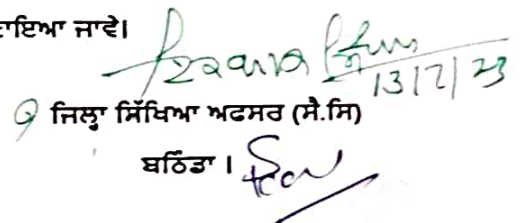 ਾਇਆ ਜਾਵੇ।
13/7/23
ਜਿਲ੍ਹਾ ਸਿੱਖਿਆ ਅਫਸਰ (ਸੈ.ਸਿ)
ਬਠਿੰਡਾ ।